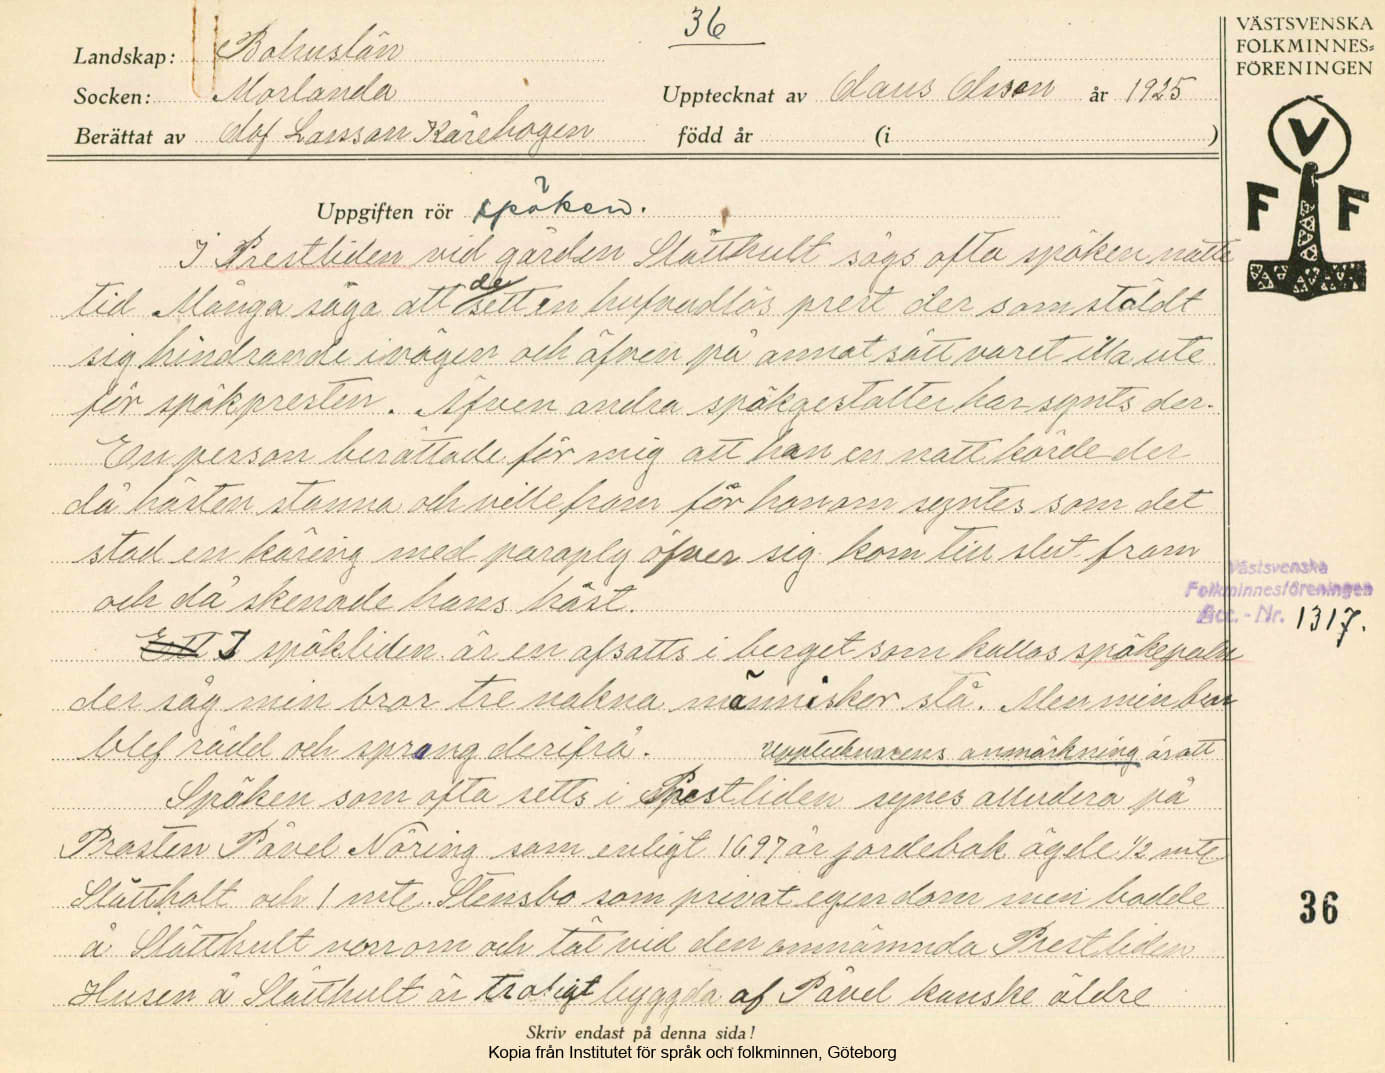 36
Landskap: Bohuslän
Socken: Morlanda
Upptecknat av Claus Olsson år 1925
Berättat av Olof Larsson Kärehogen född år (i )
VÄSTSVENSKA
FOLKMINNES=
FÖRENINGEN
V
F F
Uppgiften rör spöken.
I Prestliden vid gården Slätthult sågs ofta spöken natte
tid Många säga att de sett en hufvudlös prest der som stäldt
sig hindrande i vägen och äfven på annat sätt varet illa ute
för spökpresten. Äfven andra spökgestalter har synts der.
En person berättade för mig att han en natt körde der
då hästen stanna och ville fram för honom syntes som det
stod en käring med paraply öfver sig kom till slut fram
och då skenade hans häst.
I spökliden är en afsatts i berget som kallas spökepalm
der såg min bror tre nakna människor stå. Men min bror
blef rädd och sprang derifrå. Upptecknarens anmärkning är att
Spöken som ofta setts i Prestliden synes alludera på
Prosten Påvel Nöring som enligt 1697 år jordebok ägde 1/2 mtl
Slättholt och 1 mtl. Stensbo som privat egendom men bodde
å Slätthult norrom och tät vid den omnämnda Prestliden
Husen å Slätthult är troligt byggda af Påvel kanske äldre
Västsvenska
Folkminnesföreningen
Acc.-Nr. 1317.
36
Skriv endast på denna sida!
Kopia från Institutet för språk och folkminnen, Göteborg